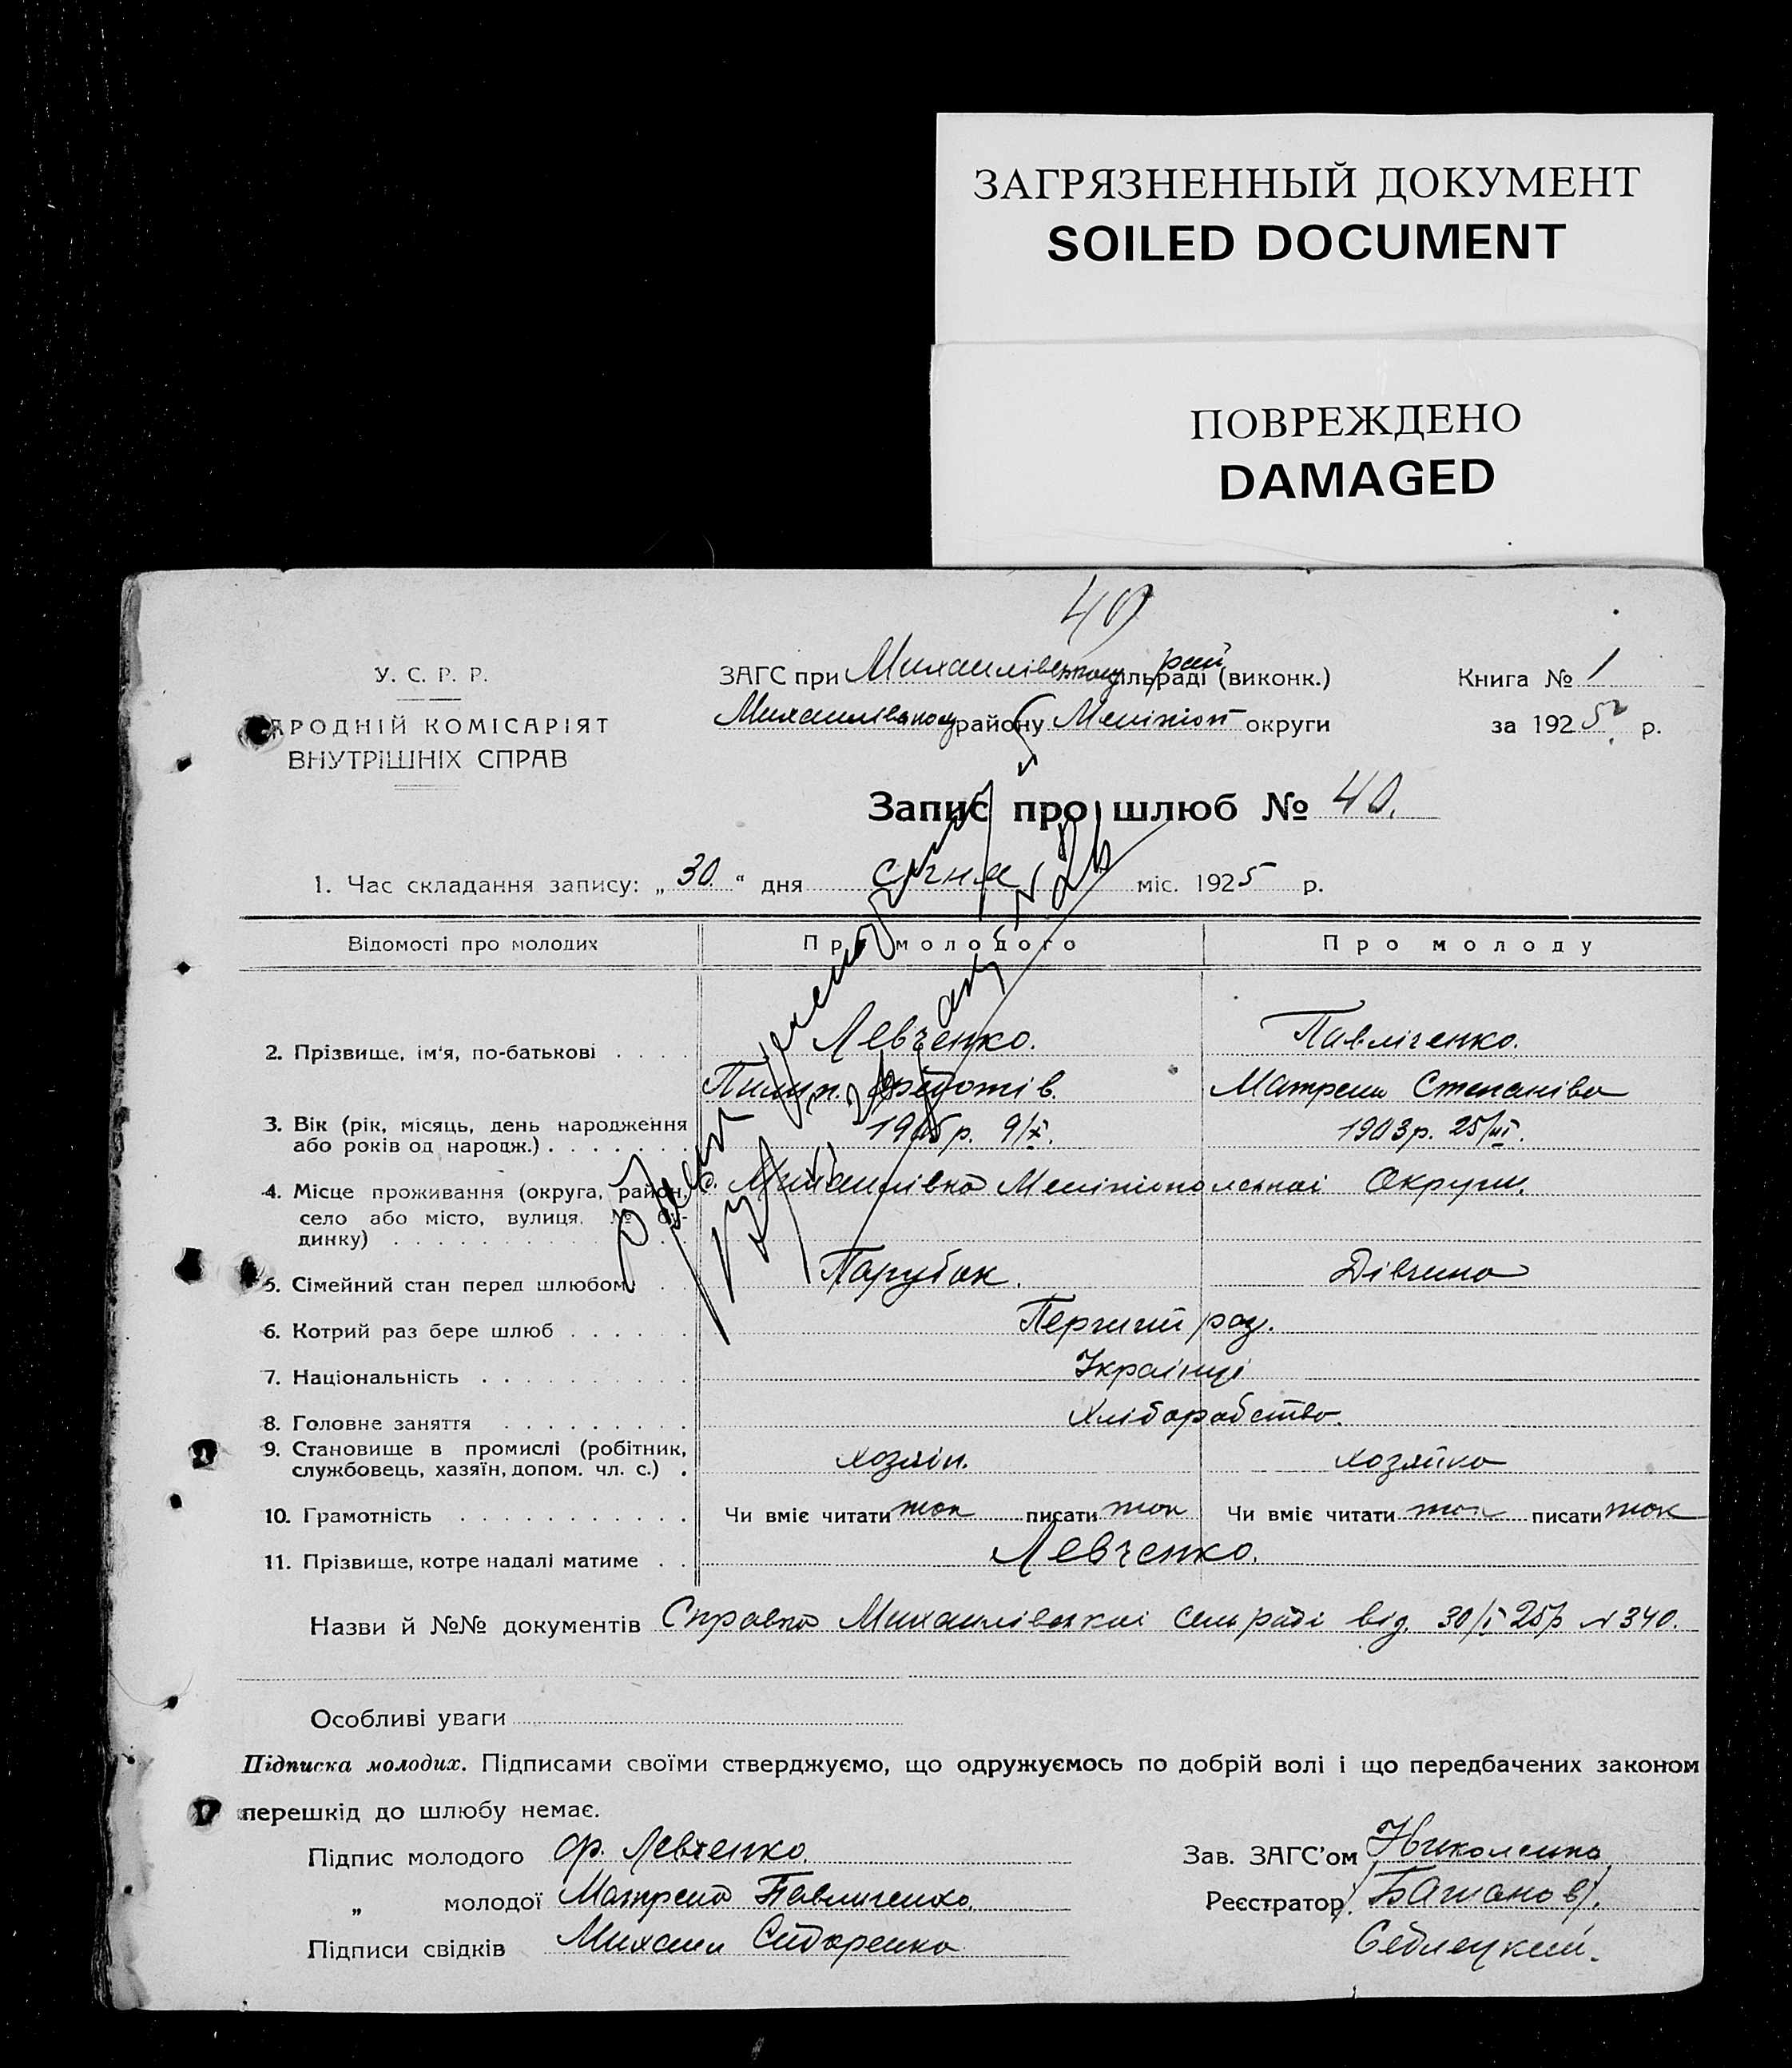 ЗАГРЯЗНЕННЫЙ ДОКУМЕНТ
SOILED DOCUMENT
ПОВРЕЖДЕНО
DAMAGED
40
У. С. Р. Р.
АРОДНІЙ КОМІСАРІЯТ
ВНУТРІШНІХ СПРАВ
ЗАГС при Михаилівському рай ільраді (виконк.)
Михаилівському району Меліпіоп округи
Книга № 1
за 1925 р.
Запис про шлюб № 40.
1. Час складання запису: „ 30 “ дня січня міс. 1925 р.
Відомості про молодих Про молодого Про молоду
2. Прізвище, ім'я, по-батькові Левченко. Павліченко.
Пилип Матрена Степанівна
3. Вік (рік, місяць, день народження або років од народж.) 9/X. 1903 р. 25/III.
4. Місце проживання (округа, район, село або місто, вулиця, № будинку) с. Михаилівка Меліпіопольскої Округи.
5. Сімейний стан перед шлюбом Парубок. Дівчина
6. Котрий раз бере шлюб Перший раз.
7. Національність Українці
8. Головне заняття Хліборобство.
9. Становище в промислі (робітник, службовець, хазяїн, допом. чл. с.) хозяін. хозяйка
10. Грамотність Чи вміє читати так писати так Чи вміє читати так писати так
11. Прізвище, котре надалі матиме Левченко.
Назви й №№ документів Справка Михаилівскоі сельради від 30/I 25 р № 340.
Особливі уваги
Підписка молодих. Підписами своїми стверджуємо, що одружуємось по добрій волі і що передбачених законом
перешкід до шлюбу немає.
Підпис молодого Ф. Левченко. Зав. ЗАГС'ом Николенко
„ молодої Матрена Павличенко. Реєстратор
Підписи свідків Михаил Сидоренко Седлецкий.